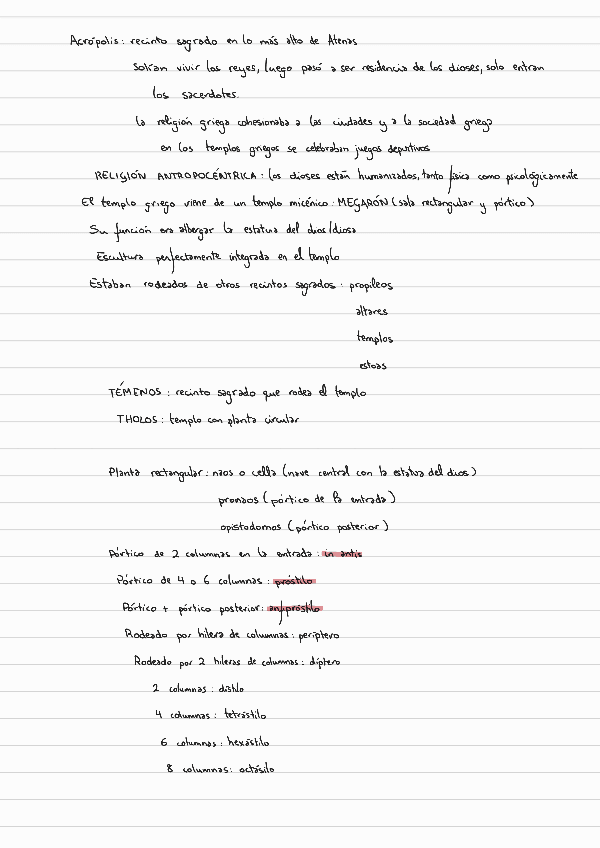 Acrópolis: recinto sagrado en lo más alto de Atenas
Solían vivir los reyes, luego pasó a ser residencia de los dioses, solo entran
los sacerdotes.
La religión griega cohesionaba a las ciudades y a la sociedad griega
en los templos griegos se celebraban juegos deportivos
RELIGIÓN ANTROPOCÉNTRICA: los dioses están humanizados, tanto física como psicológicamente
El templo griego viene de un templo micénico: MEGARÓN (sala rectangular y pórtico)
Su función era albergar la estatua del dios/diosa
Escultura perfectamente integrada en el templo
Estaban rodeados de otros recintos sagrados: propileos
altares
templos
estoas
TÉMENOS: recinto sagrado que rodea el templo
THOLOS: templo con planta circular
Planta rectangular: naos o cella (nave central con la estatua del dios)
pronaos (pórtico de la entrada)
opistodomos (pórtico posterior)
Pórtico de 2 columnas en la entrada: in antis
Pórtico de 4 o 6 columnas: próstilo
Pórtico + pórtico posterior: anfipróstilo
Rodeado por hilera de columnas: períptero
Rodeado por 2 hileras de columnas: díptero
2 columnas: dístilo
4 columnas: tetrástilo
6 columnas: hexástilo
8 columnas: octásilo